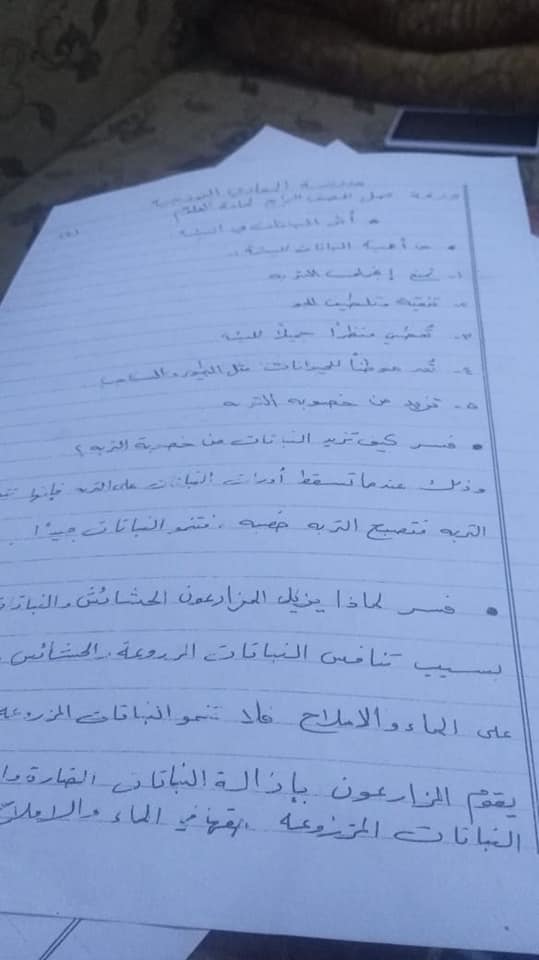 ورقة عمل الصف الرابع لمادة العلوم
أثر النباتات في البيئة
ما أهمية النباتات للبيئة.
١- تمنع إنجراف التربه
٢- تنقية وتلطيف الجو
٣- تعطي منظراً جميلاً للبيئه
٤- تعد موطناً للحيوانات مثل الطيور والسناجب
٥- تزيد من خصوبة التربه
فسر كيف تزيد النباتات من خصوبة التربه ؟
وذلك عندما تسقط أوراق النباتات على التربه فإنها
التربه فتصبح التربه خصبه ، فتنمو النباتات جيداً
فسر لماذا يزيل المزارعون الحشائش والنباتات
بسبب تنافس النباتات المزروعة، الحشائش
على الماء والاملاح فلا تنمو النباتات المزروعة
يقوم المزارعون بإزالة النباتات الضارة
النباتات المزروعة في الماء والاملاح